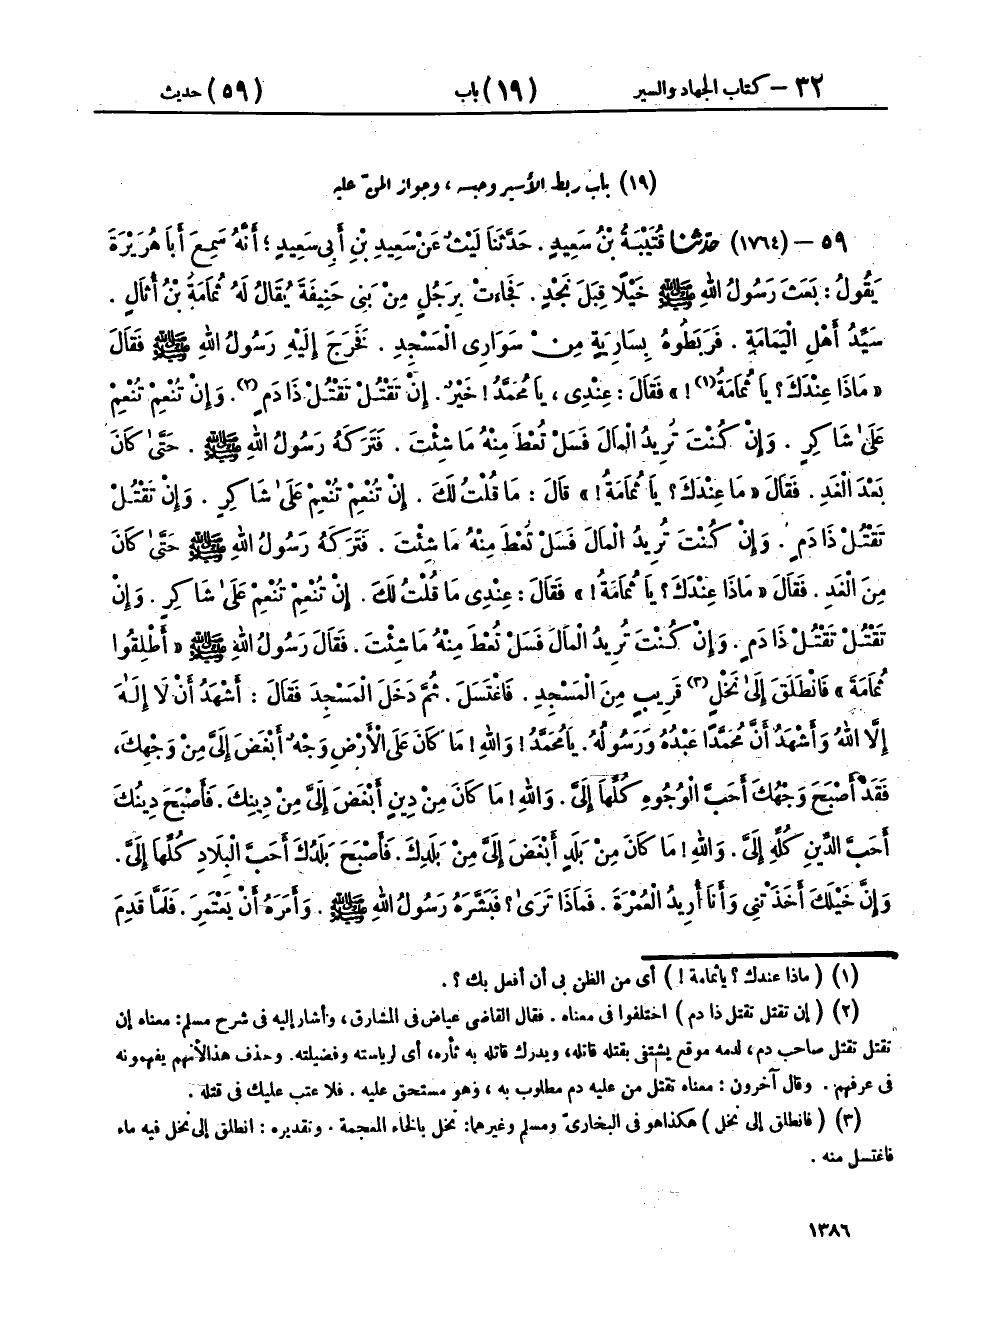 ٣٢ – كتاب الجهاد والسير (١٩) باب (٥٩) حديث
(١٩) باب ربط الأسير وحبسه ، وجواز المنّ عليه
٥٩ – (١٧٦٤) حَدَّثَنَا قُتَيْبَةُ بْنُ سَعِيدٍ . حَدَّثَنَا لَيْثٌ عَنْ سَعِيدِ بْنِ أَبِي سَعِيدٍ ؛ أَنَّهُ سَمِعَ أَبَا هُرَيْرَةَ
يَقُولُ : بَعَثَ رَسُولُ اللهِ ﷺ خَيْلًا قِبَلَ نَجْدٍ . فَجَاءَتْ بِرَجُلٍ مِنْ بَنِي حَنِيفَةَ يُقَالُ لَهُ ثُمَامَةُ بْنُ أُثَالٍ .
سَيِّدُ أَهْلِ الْيَمَامَةِ . فَرَبَطُوهُ بِسَارِيَةٍ مِنْ سَوَارِي الْمَسْجِدِ . فَخَرَجَ إِلَيْهِ رَسُولُ اللهِ ﷺ فَقَالَ
« مَاذَا عِنْدَكَ ؟ يَا ثُمَامَةُ(١) ! » فَقَالَ : عِنْدِي ، يَا مُحَمَّدُ ! خَيْرٌ . إِنْ تَقْتُلْ تَقْتُلْ ذَا دَمٍ(٢). وَإِنْ تُنْعِمْ تُنْعِمْ
عَلَىٰ شَاكِرٍ . وَإِنْ كُنْتَ تُرِيدُ الْمَالَ فَسَلْ تُعْطَ مِنْهُ مَا شِئْتَ . فَتَرَكَهُ رَسُولُ اللهِ ﷺ . حَتَّىٰ كَانَ
بَعْدَ الْغَدِ . فَقَالَ « مَا عِنْدَكَ ؟ يَا ثُمَامَةُ ! » قَالَ : مَا قُلْتُ لَكَ . إِنْ تُنْعِمْ تُنْعِمْ عَلَىٰ شَاكِرٍ . وَإِنْ تَقْتُلْ
تَقْتُلْ ذَا دَمٍ . وَإِنْ كُنْتَ تُرِيدُ الْمَالَ فَسَلْ تُعْطَ مِنْهُ مَا شِئْتَ . فَتَرَكَهُ رَسُولُ اللهِ ﷺ حَتَّىٰ كَانَ
مِنَ الْغَدِ . فَقَالَ « مَاذَا عِنْدَكَ ؟ يَا ثُمَامَةُ ! » فَقَالَ : عِنْدِي مَا قُلْتُ لَكَ . إِنْ تُنْعِمْ تُنْعِمْ عَلَىٰ شَاكِرٍ . وَإِنْ
تَقْتُلْ تَقْتُلْ ذَا دَمٍ . وَإِنْ كُنْتَ تُرِيدُ الْمَالَ فَسَلْ تُعْطَ مِنْهُ مَا شِئْتَ . فَقَالَ رَسُولُ اللهِ ﷺ « أَطْلِقُوا
ثُمَامَةَ » فَانْطَلَقَ إِلَىٰ نَخْلٍ(٣) قَرِيبٍ مِنَ الْمَسْجِدِ . فَاغْتَسَلَ . ثُمَّ دَخَلَ الْمَسْجِدَ فَقَالَ : أَشْهَدُ أَنْ لَا إِلَـٰهَ
إِلَّا اللهُ وَأَشْهَدُ أَنَّ مُحَمَّدًا عَبْدُهُ وَرَسُولُهُ. يَا مُحَمَّدُ ! وَاللهِ ! مَا كَانَ عَلَى الْأَرْضِ وَجْهٌ أَبْغَضَ إِلَيَّ مِنْ وَجْهِكَ،
فَقَدْ أَصْبَحَ وَجْهُكَ أَحَبَّ الْوُجُوهِ كُلِّهَا إِلَيَّ . وَاللهِ ! مَا كَانَ مِنْ دِينٍ أَبْغَضَ إِلَيَّ مِنْ دِينِكَ . فَأَصْبَحَ دِينُكَ
أَحَبَّ الدِّينِ كُلِّهِ إِلَيَّ . وَاللهِ ! مَا كَانَ مِنْ بَلَدٍ أَبْغَضَ إِلَيَّ مِنْ بَلَدِكَ . فَأَصْبَحَ بَلَدُكَ أَحَبَّ الْبِلَادِ كُلِّهَا إِلَيَّ .
وَإِنَّ خَيْلَكَ أَخَذَتْنِي وَأَنَا أُرِيدُ الْعُمْرَةَ . فَمَاذَا تَرَىٰ ؟ فَبَشَّرَهُ رَسُولُ اللهِ ﷺ . وَأَمَرَهُ أَنْ يَعْتَمِرَ . فَلَمَّا قَدِمَ
(١) ( ماذا عندك ؟ يا ثمامة ! ) أى من الظن بى أن أفعل بك ؟ .
(٢) ( إن تقتل تقتل ذا دم ) اختلفوا فى معناه . فقال القاضى عياض فى المشارق، وأشار إليه فى شرح مسلم: معناه إن
تقتل تقتل صاحب دم، لدمه موقع يشتفى بقتله قاتله، ويدرك قاتله به ثأره، أى لرياسته وفضيلته. وحذف هذا لأنهم يفهمونه
فى عرفهم . وقال آخرون : معناه تقتل من عليه دم مطلوب به ، وهو مستحق عليه . فلا عتب عليك فى قتله .
(٣) ( فانطلق إلى نخل ) هكذا هو فى البخارىّ ومسلم وغيرهما: نخل بالخاء المعجمة . وتقديره : انطلق إلى نخل فيه ماء
فاغتسل منه .
١٣٨٦